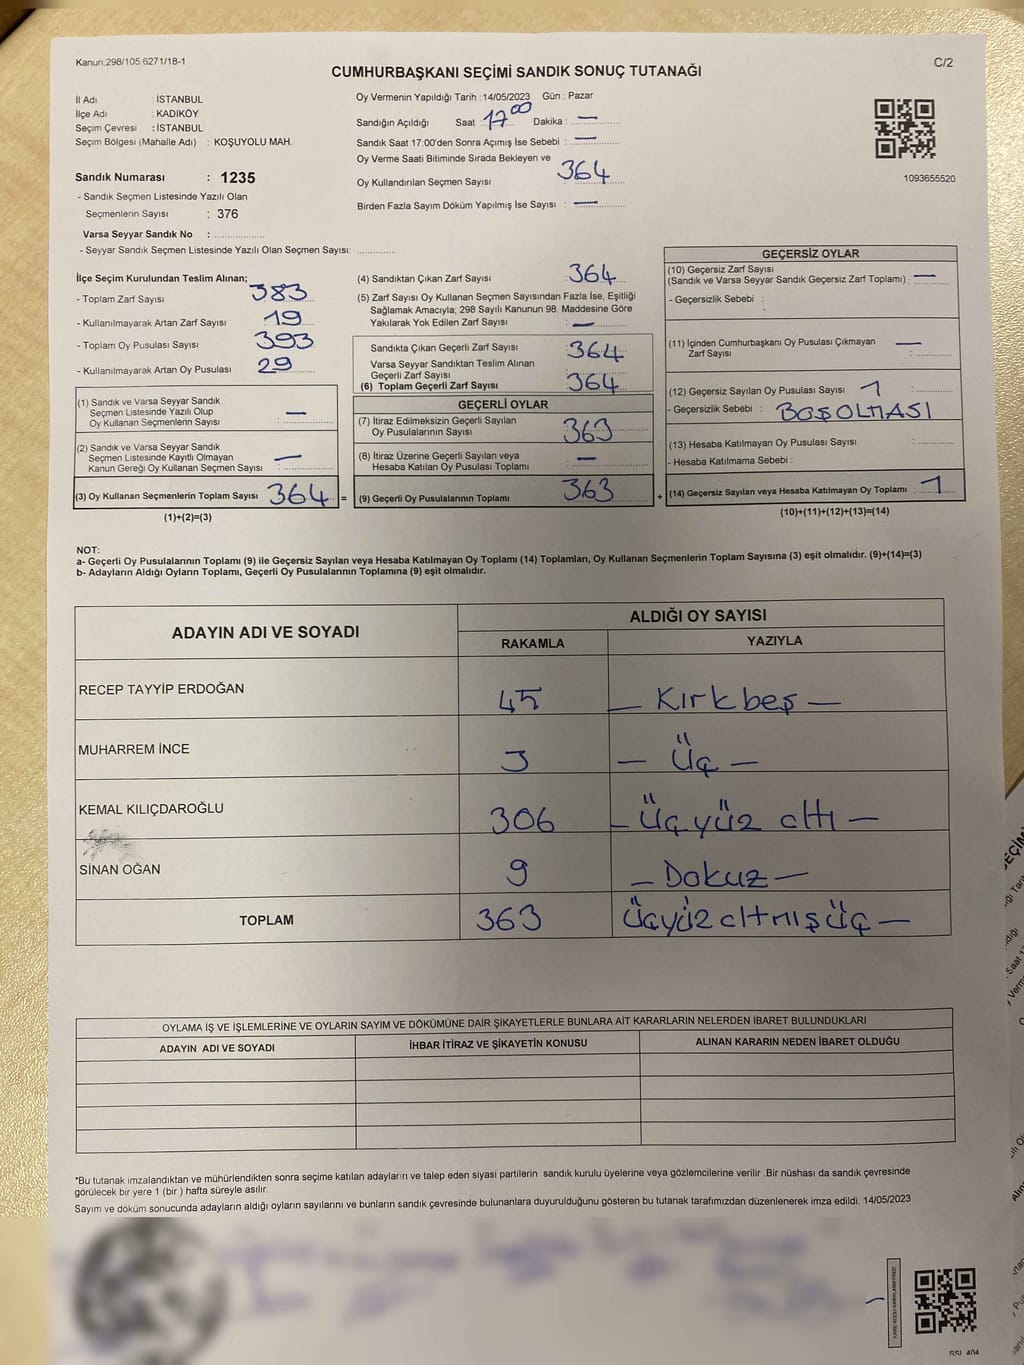 Kanun;298/105,6271/18-1
C/2
CUMHURBAŞKANI SEÇİMİ SANDIK SONUÇ TUTANAĞI
İl Adı : İSTANBUL
İlçe Adı : KADIKÖY
Seçim Çevresi : İSTANBUL
Seçim Bölgesi (Mahalle Adı) : KOŞUYOLU MAH.
Sandık Numarası : 1235
- Sandık Seçmen Listesinde Yazılı Olan
Seçmenlerin Sayısı : 376
Varsa Seyyar Sandık No : ................
- Seyyar Sandık Seçmen Listesinde Yazılı Olan Seçmen Sayısı: ............
Oy Vermenin Yapıldığı Tarih :14/05/2023 Gün : Pazar
Sandığın Açıldığı Saat : 17 00 Dakika : —
Sandık Saat 17:00'den Sonra Açımış İse Sebebi : —
Oy Verme Saati Bitiminde Sırada Bekleyen ve
Oy Kullandırılan Seçmen Sayısı : 364
Birden Fazla Sayım Döküm Yapılmış İse Sayısı : —
1093655520
İlçe Seçim Kurulundan Teslim Alınan;
- Toplam Zarf Sayısı : 383
- Kullanılmayarak Artan Zarf Sayısı : 19
- Toplam Oy Pusulası Sayısı : 393
- Kullanılmayarak Artan Oy Pusulası : 29
(1) Sandık ve Varsa Seyyar Sandık
Seçmen Listesinde Yazılı Olup
Oy Kullanan Seçmenlerin Sayısı : —
(2) Sandık ve Varsa Seyyar Sandık
Seçmen Listesinde Kayıtlı Olmayan
Kanun Gereği Oy Kullanan Seçmen Sayısı : —
(3) Oy Kullanan Seçmenlerin Toplam Sayısı : 364 =
(1)+(2)=(3)
(4) Sandıktan Çıkan Zarf Sayısı : 364
(5) Zarf Sayısı Oy Kullanan Seçmen Sayısından Fazla İse, Eşitliği
Sağlamak Amacıyla; 298 Sayılı Kanunun 98. Maddesine Göre
Yakılarak Yok Edilen Zarf Sayısı : —
Sandıkta Çıkan Geçerli Zarf Sayısı : 364
Varsa Seyyar Sandıktan Teslim Alınan
Geçerli Zarf Sayısı
(6) Toplam Geçerli Zarf Sayısı : 364
GEÇERLİ OYLAR
(7) İtiraz Edilmeksizin Geçerli Sayılan
Oy Pusulalarının Sayısı : 363
(8) İtiraz Üzerine Geçerli Sayılan veya
Hesaba Katılan Oy Pusulası Toplamı : —
(9) Geçerli Oy Pusulalarının Toplamı : 363 +
GEÇERSİZ OYLAR
(10) Geçersiz Zarf Sayısı
(Sandık ve Varsa Seyyar Sandık Geçersiz Zarf Toplamı) : —
- Geçersizlik Sebebi :
(11) İçinden Cumhurbaşkanı Oy Pusulası Çıkmayan
Zarf Sayısı : —
(12) Geçersiz Sayılan Oy Pusulası Sayısı : 1
- Geçersizlik Sebebi : BOŞOLMASI
(13) Hesaba Katılmayan Oy Pusulası Sayısı :
- Hesaba Katılmama Sebebi :
(14) Geçersiz Sayılan veya Hesaba Katılmayan Oy Toplamı : 1
(10)+(11)+(12)+(13)=(14)
NOT:
a- Geçerli Oy Pusulalarının Toplamı (9) ile Geçersiz Sayılan veya Hesaba Katılmayan Oy Toplamı (14) Toplamları, Oy Kullanan Seçmenlerin Toplam Sayısına (3) eşit olmalıdır. (9)+(14)=(3)
b- Adayların Aldığı Oyların Toplamı, Geçerli Oy Pusulalarının Toplamına (9) eşit olmalıdır.
ADAYIN ADI VE SOYADI
ALDIĞI OY SAYISI
RAKAMLA YAZIYLA
RECEP TAYYİP ERDOĞAN 45 — Kırkbeş —
MUHARREM İNCE 3 — Üç —
KEMAL KILIÇDAROĞLU 306 — Üçyüz altı —
SİNAN OĞAN 9 — Dokuz —
TOPLAM 363 Üçyüz altmışüç —
OYLAMA İŞ VE İŞLEMLERİNE VE OYLARIN SAYIM VE DÖKÜMÜNE DAİR ŞİKAYETLERLE BUNLARA AİT KARARLARIN NELERDEN İBARET BULUNDUKLARI
ADAYIN ADI VE SOYADI İHBAR İTİRAZ VE ŞİKAYETİN KONUSU ALINAN KARARIN NEDEN İBARET OLDUĞU
*Bu tutanak imzalandıktan ve mühürlendikten sonra seçime katılan adayların ve talep eden siyasi partilerin sandık kurulu üyelerine veya gözlemcilerine verilir .Bir nüshası da sandık çevresinde
görülecek bir yere 1 (bir ) hafta süreyle asılır.
Sayım ve döküm sonucunda adayların aldığı oyların sayılarını ve bunların sandık çevresinde bulunanlara duyurulduğunu gösteren bu tutanak tarafımızdan düzenlenerek imza edildi. 14/05/2023